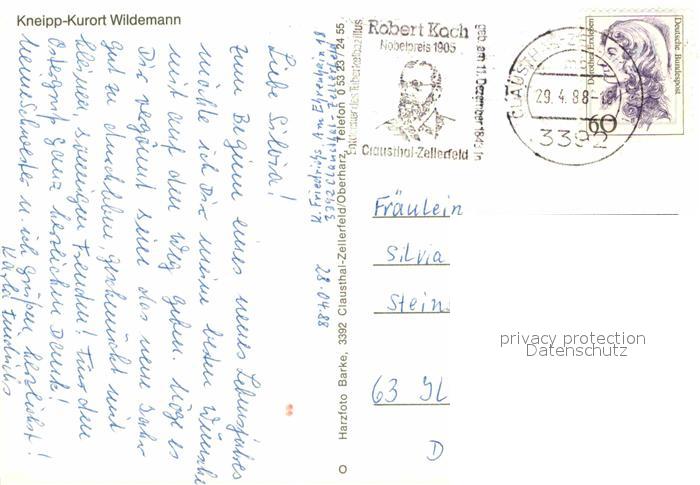 Kneipp-Kurort Wildemann
K. Friedrichs Am Ehrenhain 18
3392 Clausthal-Zellerfeld
28.04.88
Liebe Silvia!
Zum Beginn eines neues Lebensjahres
möchte ich Dir meine besten Wünsche
mit auf den Weg geben. Möge es
Dir vergönnt sein das neue Jahr
gut zu durchleben, geschmückt mit
kleinen, sonnigen Freuden! Für den
Ostergruß ganz herzlichen Dank!
Meine Schwester u. ich grüßen herzlichst!
Karla Friedrichs
Harzfoto Barke, 3392 Clausthal-Zellerfeld/Oberharz, Telefon 0 53 23 / 24 55
Robert Koch
Nobelpreis 1905
Entdecker des Tuberkelbazillus
geb. am 11. Dezember 1843 in
Clausthal-Zellerfeld
CLAUSTHAL-ZE
29.4.88
3392
Dorothea Erxleben
Deutsche Bundespost
60
Fräulein
Silvia
Stein
63
D
privacy protection
Datenschutz